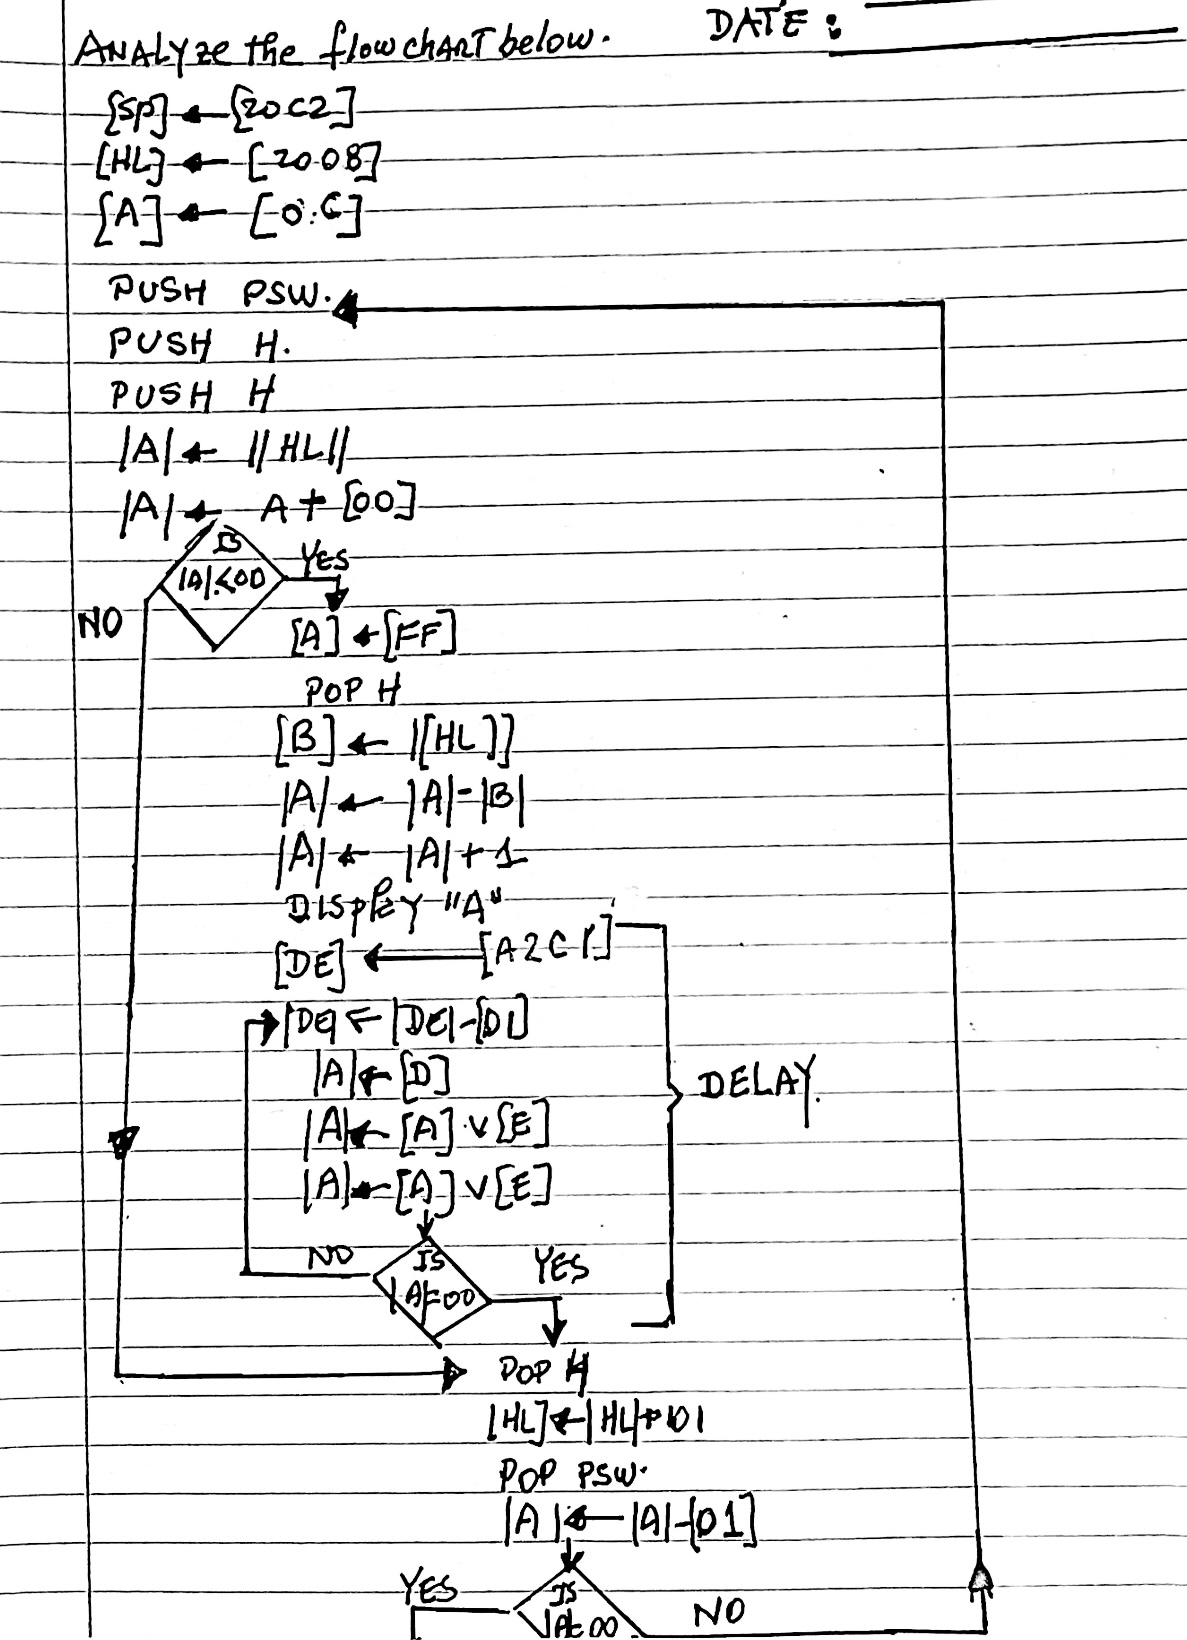 ANALYze the flowchART below.
DATE :
[SP] ← [20C2]
[HL] ← [2008]
[A] ← [0.C]
PUSH PSW.
PUSH H.
PUSH H
|A| ← ||HL||
|A| ← A + [00]
IS
|A|<00
YES
NO
[A] ← [FF]
POP H
[B] ← |[HL]]
|A| ← |A|-|B|
|A| ← |A|+1
DISplEY "A"
[DE] ← [A2C1]
|DE| ← |DE|-[01]
|A| ← [D]
DELAY.
|A| ← [A] ∨ [E]
|A| ← [A] ∨ [E]
NO
IS
|A|=00
YES
POP H
[HL] ← |HL|+01
POP PSW.
|A| ← |A|-[01]
YES
IS
|A|=00
NO